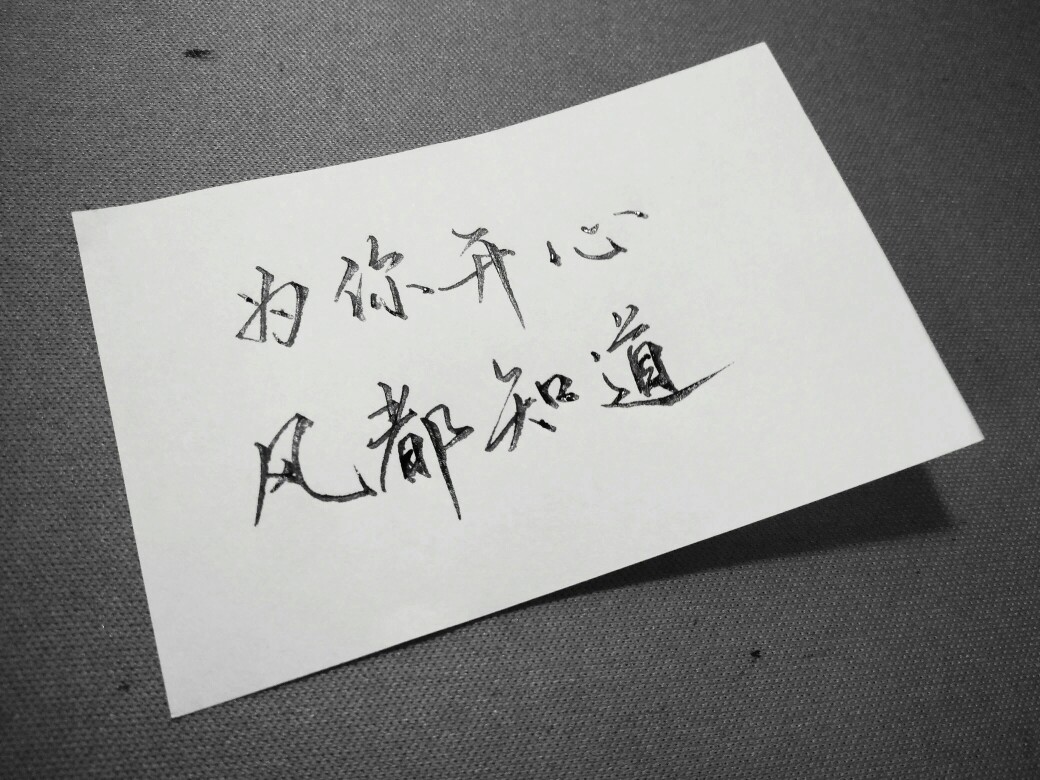 为你开心
风都知道